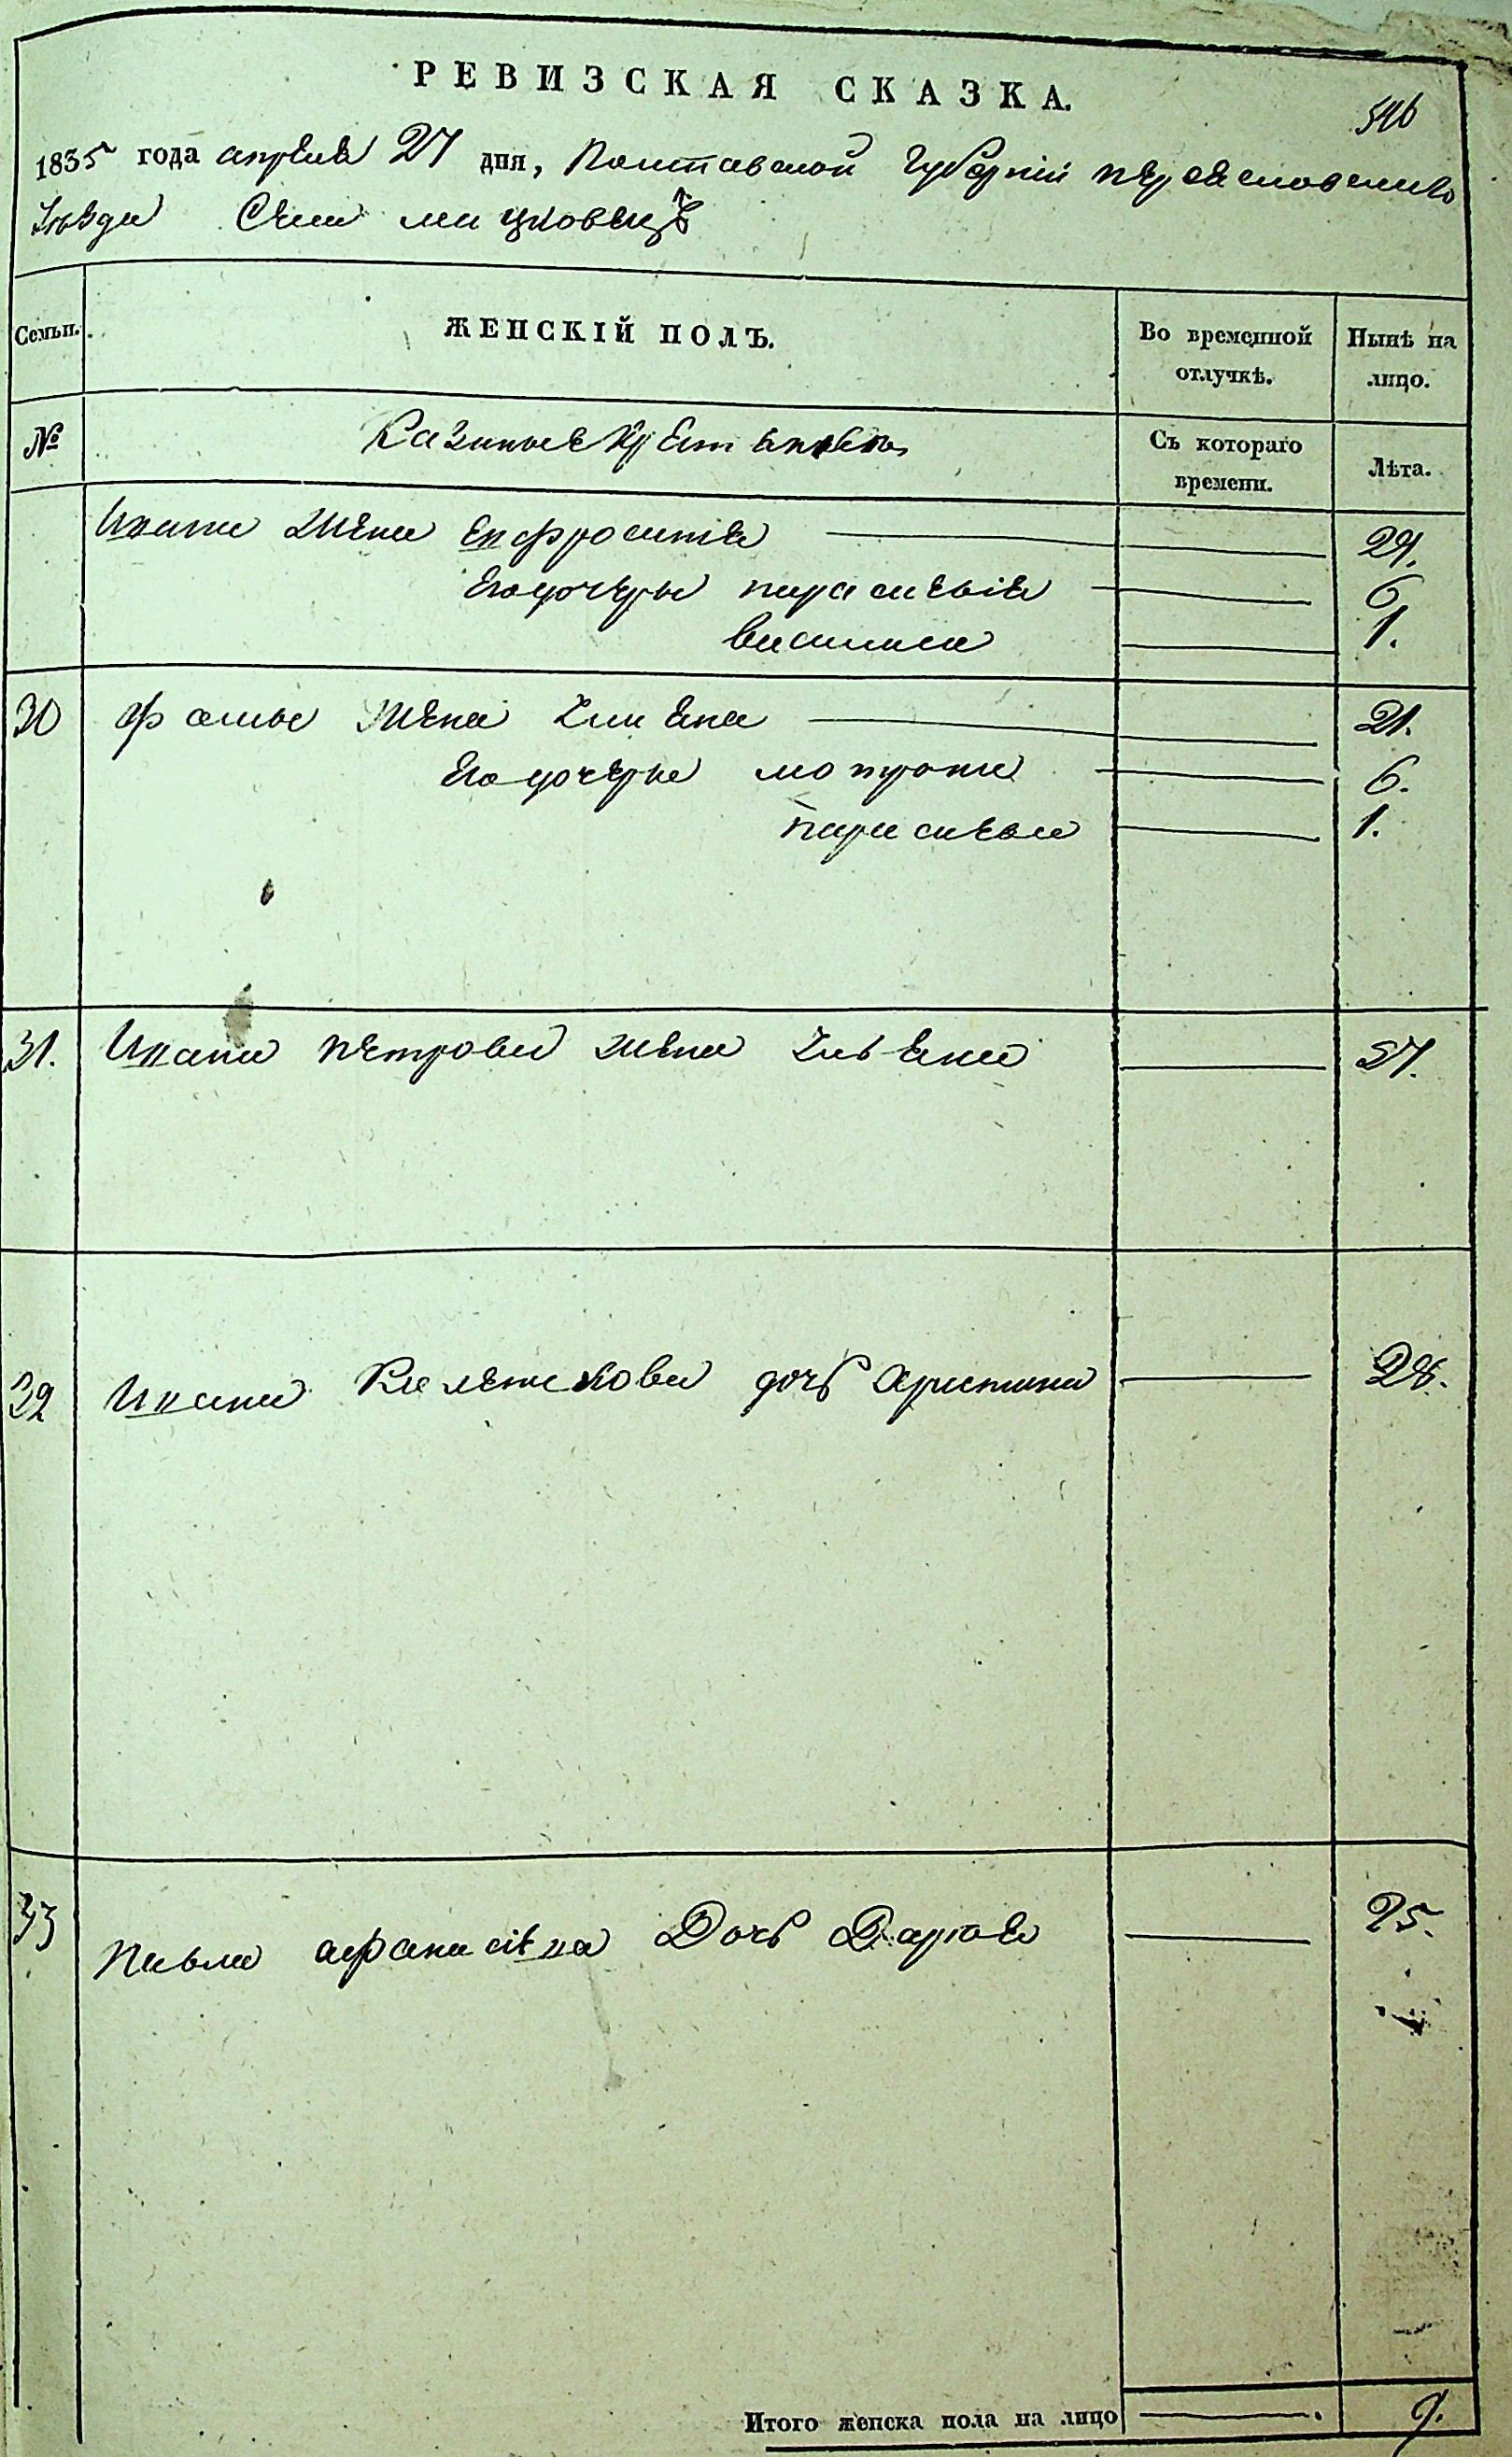 РЕВИЗСКАЯ СКАЗКА.
546
1835 года апреля 27 дня, Полтавской Губерній переяславского
уезда Села мацковецъ
Семьи. ЖЕНСКІЙ ПОЛЪ. Во временной отлучкѣ. Нынѣ на лицо.
№ Казенные Съ котораго времени. Лѣта.
Ивана жена Евфросинія 29.
Его дочеры параскевія 6
Василиса 1.
30 фомы жена Улияна 21.
Его дочеры мотрона 6.
параскева 1.
31. Ивана петрова жена Улияна 57.
32 Ивана дочь Христина 28.
33 павла афанасіева Дочь Дарія 25.
Итого женска пола на лицо 9.